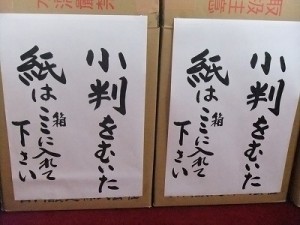 小判をむいた
紙は箱ここに入れて
下さい
小判をむいた
紙は箱ここに入れて
下さい
取扱注意